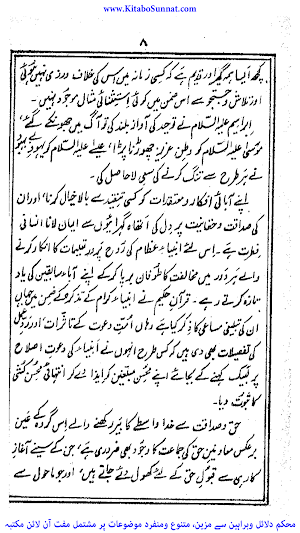 www.KitaboSunnat.com
۸
کچھ ایسا ہمہ گیر اور قدیم ہے کہ کسی زمانہ میں اس کی خلاف ورزی نہیں ہوئی
اور تلاش و جستجو سے اس ضمن میں کوئی استثنائی مثال موجود نہیں۔
ابراہیم علیہ السلام نے توحید کی آواز بلند کی تو آگ میں جھونکے گئے،
موسیٰ علیہ السلام کو وطن عزیز چھوڑنا پڑا، عیسےٰ علیہ السلام کو یہود بے بہبود
نے ہر طرح سے تنگ کرنے کی سعی لاحاصل کی۔
اپنے آبائی افکار و معتقدات کو کسی تنقید سے بالا خیال کرنا، اور ان
کی صداقت و حقانیت پر دل کی اتھاہ گہرائیوں سے ایمان لانا انسانی
فطرت ہے۔ اس لئے انبیاء عظام کی روح پرور تعلیمات کا انکار کرنے
والے ہر دور میں مخالفت کا طوفان برپا کر کے اپنے آباء سابقین کی یاد
تازہ کرتے رہے۔ قرآن حکیم نے انبیاء کرام کے تذکروں کے ضمن میں جہاں
ان کی تبلیغی مساعی کا ذکر کیا ہے وہاں امت دعوت کے تاثرات، اور رد عمل
کی تفصیلات بھی دی ہیں کہ کس طرح انہوں نے انبیاء کی دعوت اصلاح
پر لبیک کہنے کے بجائے اپنے محسن مبلغین کو ایذا دے کر انتہائی محسن کشی
کا ثبوت دیا۔
حق و صداقت سے خدا واسطے کا بیر رکھنے والے اس گروہ کے عین
برعکس معاونین حق کی جماعت کا وجود بھی ضروری ہے، جن کے سینے آغاز
کار ہی سے قبول حق کے لئے کھول دئے جاتے ہیں، اور جو ماحول سے
محکم دلائل وبراہین سے مزین، متنوع ومنفرد موضوعات پر مشتمل مفت آن لائن مکتبہ